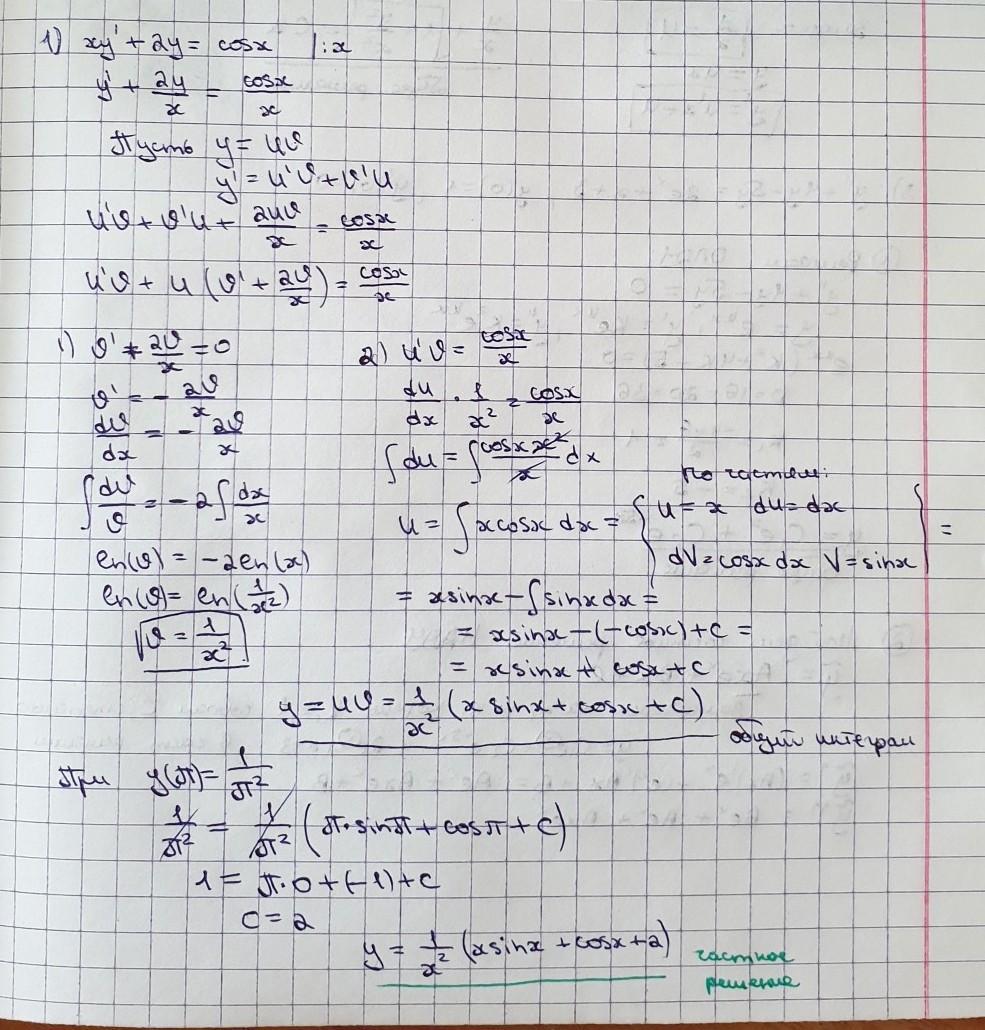 1) xy' + 2y = cosx |:x
y' + 2y/x = cosx/x
Пусть y = uv
y' = u'v + v'u
u'v + v'u + 2uv/x = cosx/x
u'v + u (v' + 2v/x) = cosx/x
1) v' + 2v/x = 0
v' = - 2v/x
dv/dx = - 2v/x
∫ dv/v = -2 ∫ dx/x
ln(v) = -2ln(x)
ln(v) = ln(1/x²)
v = 1/x²
2) u'v = cosx/x
du/dx · 1/x² = cosx/x
∫ du = ∫ cosx x²/x dx
по частям:
u = ∫ x cosx dx = { u = x du = dx
dV = cosx dx V = sinx } =
= x sinx - ∫ sinx dx =
= x sinx - (-cosx) + C =
= x sinx + cosx + C
y = uv = 1/x² (x sinx + cosx + C)
общий интеграл
При y(π) = 1/π²
1/π² = 1/π² (π·sinπ + cosπ + C)
1 = π·0 + (-1) + C
C = 2
y = 1/x² (x sinx + cosx + 2)
частное
решение